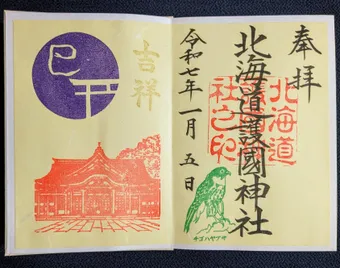 奉拝
北海道護國神社
北海道
社之印
令和七年一月五日
チゴハヤブサ
吉祥
巳